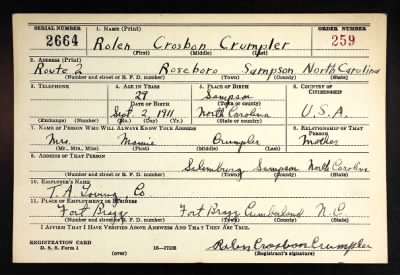 SERIAL NUMBER 1. NAME (Print) ORDER NUMBER
2664 Rolen Crosbon Crumpler 259
(First) (Middle) (Last)
2. ADDRESS (Print)
Route 2 Roseboro Sampson North Carolina
(Number and street or R. F. D. number) (Town) (County) (State)
3. TELEPHONE 4. AGE IN YEARS 5. PLACE OF BIRTH 6. COUNTRY OF CITIZENSHIP
29 Sampson
DATE OF BIRTH (Town or county)
Sept. 2, 1911 North Carolina U.S.A.
(Exchange) (Number) (Mo.) (Day) (Yr.) (State or country)
7. NAME OF PERSON WHO WILL ALWAYS KNOW YOUR ADDRESS 8. RELATIONSHIP OF THAT PERSON
Mrs. Crumpler Mother
(Mr., Mrs., Miss) (First) (Middle) (Last)
9. ADDRESS OF THAT PERSON
Salemburg Sampson North Carolina
(Number and street or R. F. D. number) (Town) (County) (State)
10. EMPLOYER'S NAME
T. A. Loving Co
11. PLACE OF EMPLOYMENT OR BUSINESS
Fort Bragg Fort Bragg Cumberland N.C.
(Number and street or R. F. D. number) (Town) (County) (State)
I AFFIRM THAT I HAVE VERIFIED ABOVE ANSWERS AND THAT THEY ARE TRUE.
REGISTRATION CARD
D. S. S. Form 1 16-17105 Rolen Crosbon Crumpler
(over) (Registrant's signature)